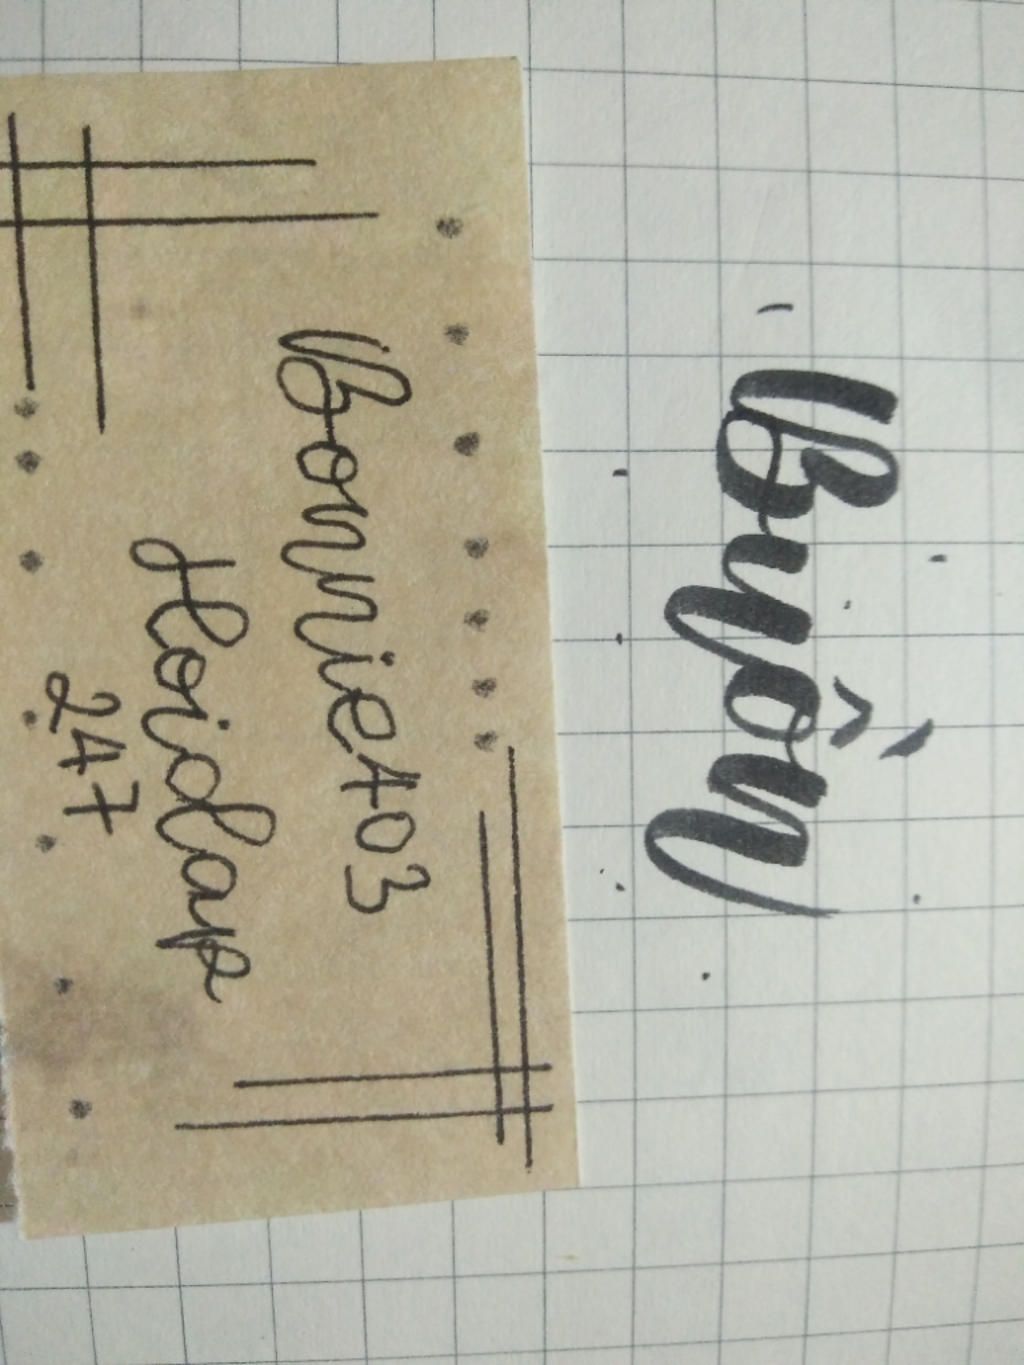 Buồn
Bonnie403
Hoidap
247